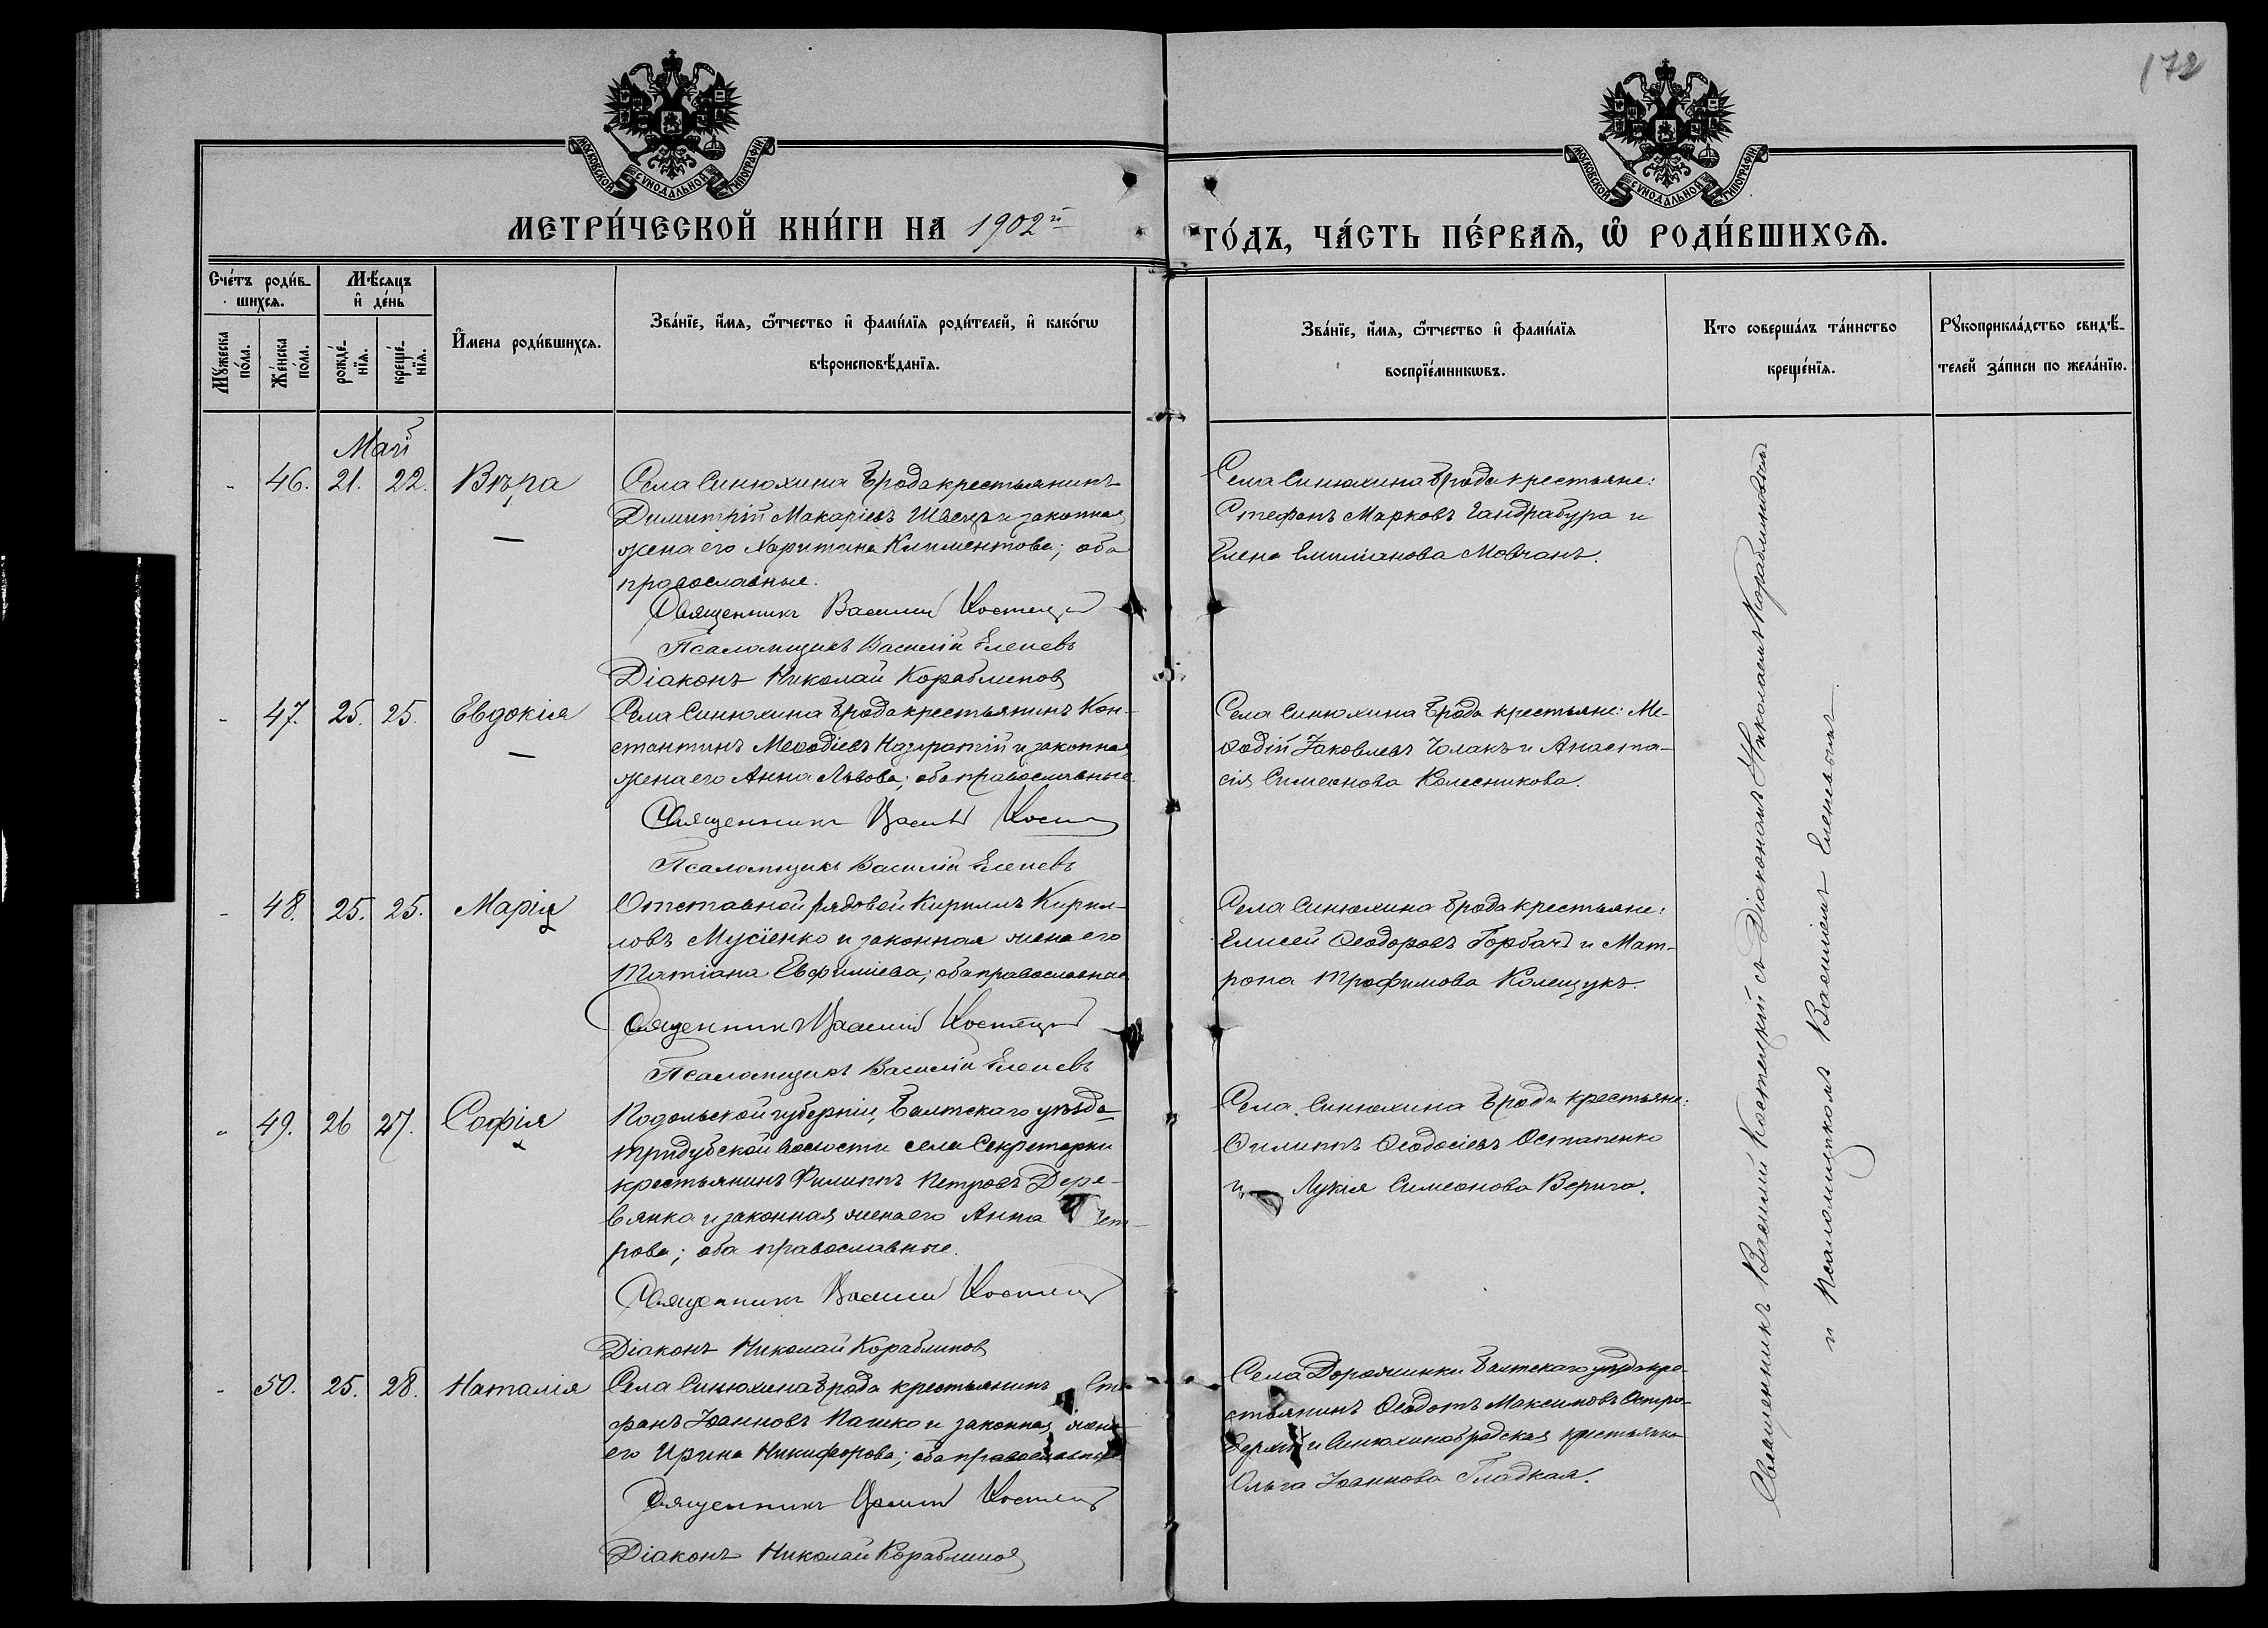 172
МОСКОВСКОЙ СѴНОДАЛЬНОЙ ТИПОГРАФІИ
МОСКОВСКОЙ СѴНОДАЛЬНОЙ ТИПОГРАФІИ
МЕТРИ́ЧЕСКОЙ КНИ́ГИ НА 1902й
ГО́ДЪ, ЧА́СТЬ ПЕ́РВАѦ, Ѡ҆ РОДИ́ВШИХСѦ.
Сче́тъ роди́в-
шихсѧ.
Мѣ́сѧцъ
и҆ де́нь
Мꙋ́жеска
по́ла.
Же́нска
по́ла.
рожде́-
нїѧ.
креще́-
нїѧ.
И҆́мена роди́вшихсѧ.
Зва́нїе, и҆́мѧ, ѻ҆́тчество и҆ фами́лїѧ роди́телей, и҆ како́гѡ
вѣроисповѣ́данїѧ.
Зва́нїе, и҆́мѧ, ѻ҆́тчество и҆ фами́лїѧ
воспрїе́мникѡвъ.
Кто соверша́лъ та́инство
креще́нїѧ.
Рꙋкоприкла́дство свидѣ́-
телей за́писи по жела́нїю.
Май
46. 21. 22. Вѣра
Села Синюхина Брода крестьянинъ
Димитрій Макаріевъ Швецъ и законная
жена его Харитина Климентова; оба
православные.
Священникъ Василий Костецкий
Псаломщикъ Василій Еленевъ
Діаконъ Николай Кораблиновъ
Села Синюхина Брода крестьяне:
Стефанъ Марковъ Гандрабура и
Елена Емилианова Мовчанъ.
47. 25. 25. Евдокія
Села Синюхина Брода крестьянинъ Кон-
стантинъ Меѳодіевъ и законная
жена его Анна Львова; оба православные.
Священникъ Василий
Псаломщикъ Василій Еленевъ
Села Синюхина Брода крестьяне: Ме-
ѳодій Іаковлевъ и Анаста-
сія Симеонова Колесникова.
48. 25. 25. Марія
Отставной рядовой Кириллъ Кирил-
ловъ Мусіенко и законная жена его
Татіана Евфиміева; оба православные
Священникъ Василий Костецкий
Псаломщикъ Василій Еленевъ
Села Синюхина Брода крестьяне:
Елисей Ѳеодоровъ Горбачъ и Мат-
рона Трофимова Колещукъ.
49. 26 27. Софія
Подольской губерніи, Балтскаго уѣзда
Тридубской волости села Секретарки
крестьянинъ Филиппъ Петровъ Дере-
вянко и законная жена его Анна Пет-
рова; оба православные.
Священникъ Василий Костецкий
Діаконъ Николай Кораблиновъ
Села Синюхина Брода крестьяне:
Филиппъ Ѳеодосіевъ Остапенко
и Лукія Симеонова Верига.
50. 25. 28. Наталія
Села Синюхина Брода крестьянинъ Сте-
фанъ Іоанновъ Пашко и законная жена
его Ирина Никифорова; оба православные
Священникъ Василий Костецкий
Діаконъ Николай Кораблиновъ
Села Дорожинки Балтскаго уѣзда кре-
стьянинъ Ѳеодотъ Максимовъ
и Синюхинобродская крестьянка
Ольга Іоаннова Гладкая.
Священникъ Василий Костецкій съ Діакономъ Николаемъ Кораблиновымъ
и Псаломщикомъ Василіемъ Еленевымъ.